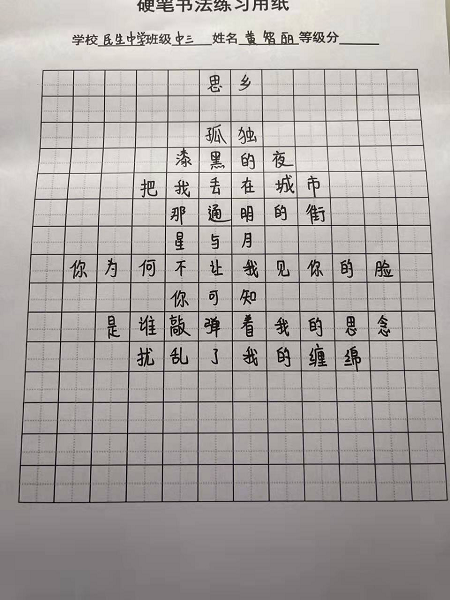 硬笔书法练习用纸
学校民生中学班级中三 姓名黄智丽等级分
思乡
孤独
漆黑的夜
把我丢在城市
那通明的街
星与月
你为何不让我见你的脸
你可知
是谁敲弹着我的思念
扰乱了我的缠绵